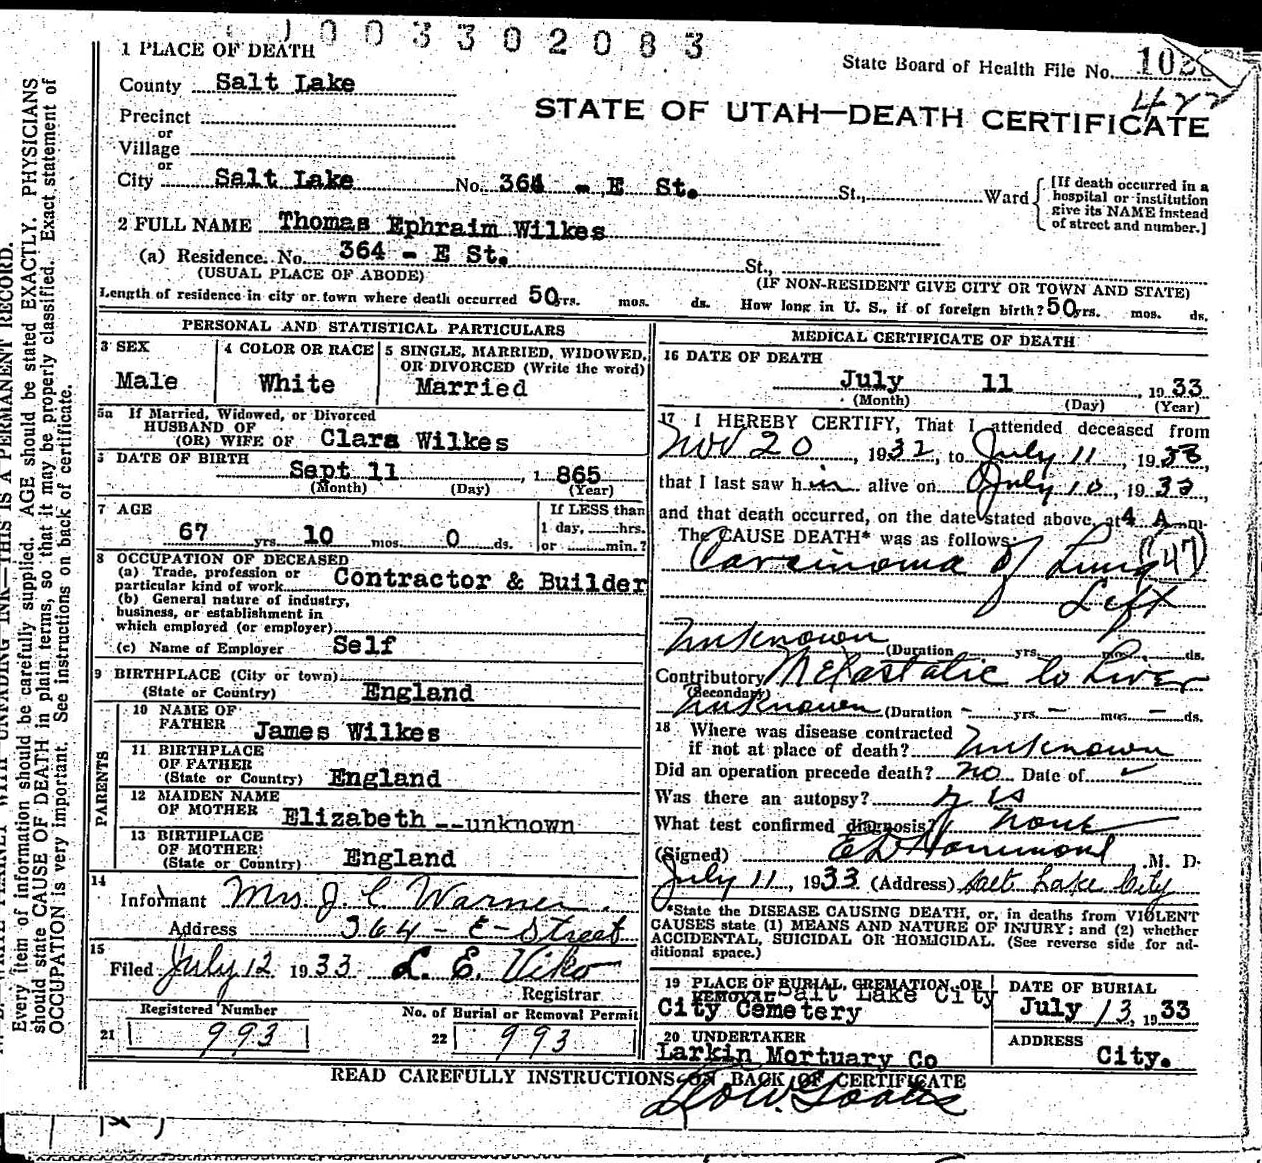 1003302083
1 PLACE OF DEATH
State Board of Health File No. 102
422
County Salt Lake
STATE OF UTAH—DEATH CERTIFICATE
Precinct
or
Village
or
City Salt Lake No. 364 - E St. St., Ward
[If death occurred in a
hospital or institution
give its NAME instead
of street and number.]
2 FULL NAME Thomas Ephraim Wilkes
(a) Residence. No. 364 - E St. St.,
(USUAL PLACE OF ABODE) (IF NON-RESIDENT GIVE CITY OR TOWN AND STATE)
Length of residence in city or town where death occurred 50 yrs. mos. ds. How long in U. S., if of foreign birth? 50 yrs. mos. ds.
PERSONAL AND STATISTICAL PARTICULARS
3 SEX
Male
4 COLOR OR RACE
White
5 SINGLE, MARRIED, WIDOWED,
OR DIVORCED (Write the word)
Married
5a If Married, Widowed, or Divorced
HUSBAND OF
(OR) WIFE OF Clara Wilkes
DATE OF BIRTH
Sept 11, 1865
(Month) (Day) (Year)
7 AGE
67 yrs 10 mos. 0 ds.
If LESS than
1 day, hrs.
or min.?
8 OCCUPATION OF DECEASED
(a) Trade, profession or
particular kind of work Contractor & Builder
(b) General nature of industry,
business, or establishment in
which employed (or employer)
(c) Name of Employer Self
9 BIRTHPLACE (City or town)
(State or Country) England
PARENTS
10 NAME OF
FATHER James Wilkes
11 BIRTHPLACE
OF FATHER
(State or Country) England
12 MAIDEN NAME
OF MOTHER Elizabeth --unknown
13 BIRTHPLACE
OF MOTHER
(State or Country) England
14
Informant Mrs. J. C. Warner.
Address 364 - E - Street
15
Filed July 12 1933 L. E. Viko
Registrar
Registered Number
21 993
No. of Burial or Removal Permit
22 993
MEDICAL CERTIFICATE OF DEATH
16 DATE OF DEATH
July 11, 1933
(Month) (Day) (Year)
17 I HEREBY CERTIFY, That I attended deceased from
Nov 20, 1932, to July 11, 1933,
that I last saw him alive on July 10, 1933,
and that death occurred, on the date stated above, at 4 A m.
The CAUSE DEATH* was as follows:
Carcinoma of Lung (47)
Left
Unknown
(Duration yrs. mos. ds.
Contributory Metastatic to Liver
(Secondary)
Unknown (Duration - yrs. - mos. - ds.
18 Where was disease contracted
if not at place of death? Unknown
Did an operation precede death? no Date of ✓
Was there an autopsy? yes
What test confirmed diagnosis? none
(Signed) E D Hammond, M. D.
July 11, 1933 (Address) Salt Lake City
*State the DISEASE CAUSING DEATH, or, in deaths from VIOLENT
CAUSES state (1) MEANS AND NATURE OF INJURY; and (2) whether
ACCIDENTAL, SUICIDAL OR HOMICIDAL. (See reverse side for ad-
ditional space.)
19 PLACE OF BURIAL, CREMATION, OR
REMOVAL Salt Lake City
City Cemetery
DATE OF BURIAL
July 13, 1933
20 UNDERTAKER
Larkin Mortuary Co
ADDRESS
City.
READ CAREFULLY INSTRUCTIONS ON BACK OF CERTIFICATE
WRITE PLAINLY WITH UNFADING INK—THIS IS A PERMANENT RECORD.
Every item of information should be carefully supplied. AGE should be stated EXACTLY. PHYSICIANS
should state CAUSE OF DEATH in plain terms, so that it may be properly classified. Exact statement of
OCCUPATION is very important. See instructions on back of certificate.